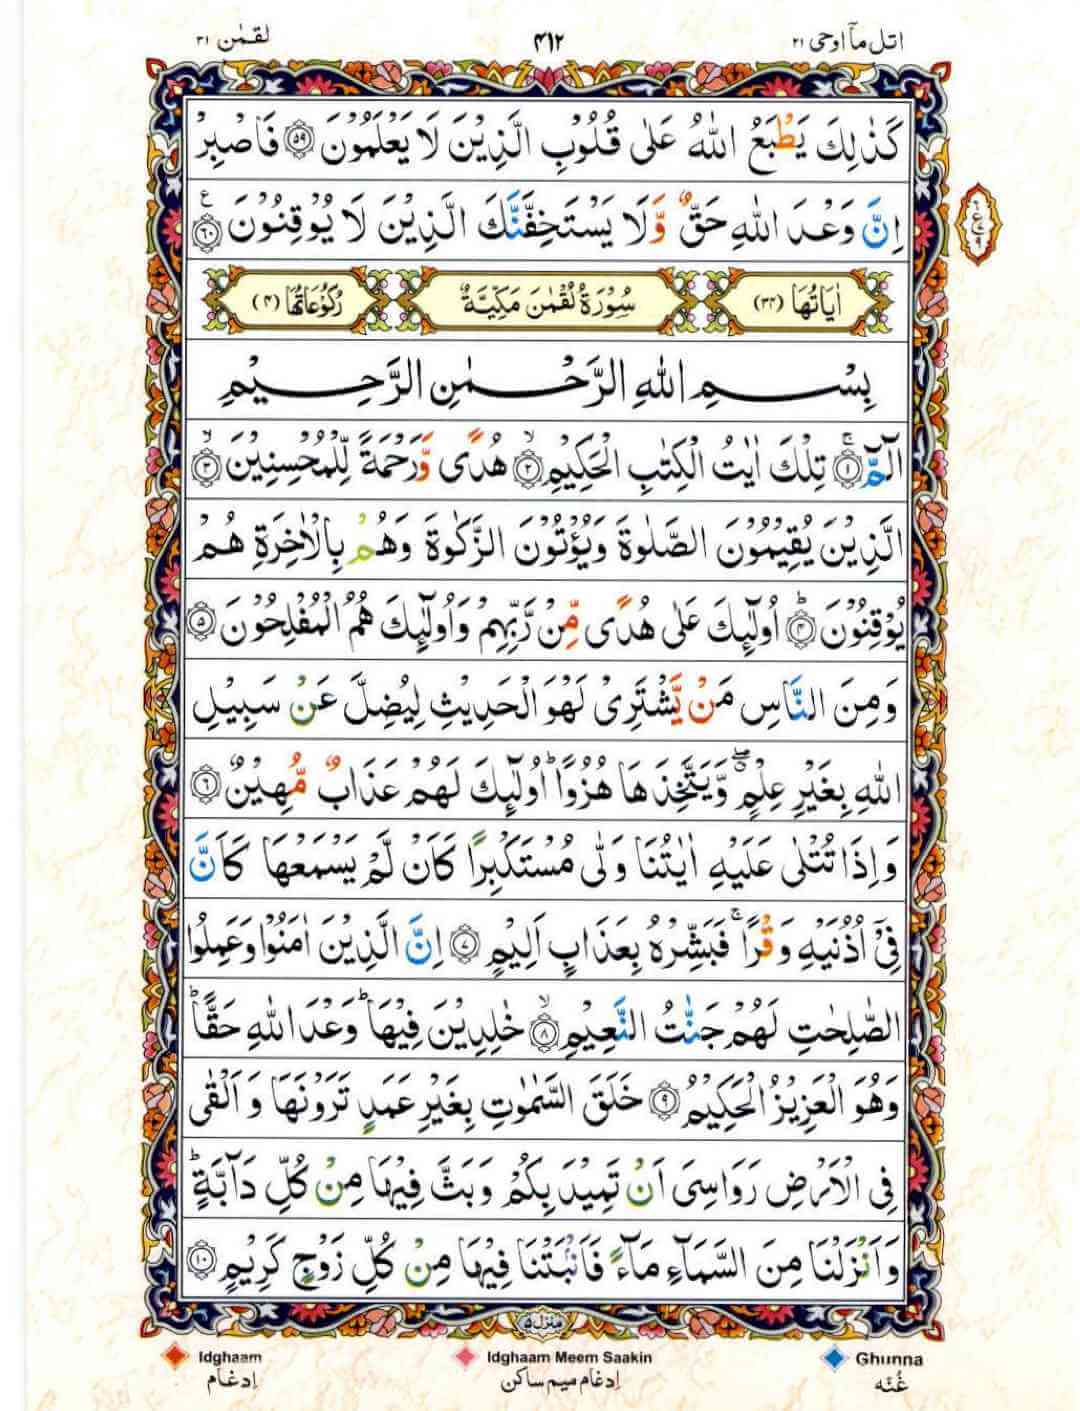 اتل مآ اوحی ٢١ ٤١٢ لقمٰن ٣١
كَذٰلِكَ يَطْبَعُ اللّٰهُ عَلٰى قُلُوْبِ الَّذِيْنَ لَا يَعْلَمُوْنَ ﴿٥٩﴾ فَاصْبِرْ
اِنَّ وَعْدَ اللّٰهِ حَقٌّ وَّلَا يَسْتَخِفَّنَّكَ الَّذِيْنَ لَا يُوْقِنُوْنَ ﴿٦٠﴾ ع
اٰيَاتُهَا (٣٤) سُوْرَةُ لُقْمٰنَ مَكِّيَّةٌ رُكُوْعَاتُهَا (٤)
بِسْمِ اللّٰهِ الرَّحْمٰنِ الرَّحِيْمِ
الٓمّٓ ۚ﴿١﴾ تِلْكَ اٰيٰتُ الْكِتٰبِ الْحَكِيْمِ ۙ﴿٢﴾ هُدًى وَّرَحْمَةً لِّلْمُحْسِنِيْنَ ۙ﴿٣﴾
الَّذِيْنَ يُقِيْمُوْنَ الصَّلٰوةَ وَيُؤْتُوْنَ الزَّكٰوةَ وَهُمْ بِالْاٰخِرَةِ هُمْ
يُوْقِنُوْنَ ؕ﴿٤﴾ اُولٰٓئِكَ عَلٰى هُدًى مِّنْ رَّبِّهِمْ وَاُولٰٓئِكَ هُمُ الْمُفْلِحُوْنَ ﴿٥﴾
وَمِنَ النَّاسِ مَنْ يَّشْتَرِىْ لَهْوَ الْحَدِيْثِ لِيُضِلَّ عَنْ سَبِيْلِ
اللّٰهِ بِغَيْرِ عِلْمٍ ۖ وَّيَتَّخِذَهَا هُزُوًا ؕ اُولٰٓئِكَ لَهُمْ عَذَابٌ مُّهِيْنٌ ﴿٦﴾
وَاِذَا تُتْلٰى عَلَيْهِ اٰيٰتُنَا وَلّٰى مُسْتَكْبِرًا كَاَنْ لَّمْ يَسْمَعْهَا كَاَنَّ
فِىْٓ اُذُنَيْهِ وَقْرًا ۚ فَبَشِّرْهُ بِعَذَابٍ اَلِيْمٍ ﴿٧﴾ اِنَّ الَّذِيْنَ اٰمَنُوْا وَعَمِلُوا
الصّٰلِحٰتِ لَهُمْ جَنّٰتُ النَّعِيْمِ ۙ﴿٨﴾ خٰلِدِيْنَ فِيْهَا ؕ وَعْدَ اللّٰهِ حَقًّا ؕ
وَهُوَ الْعَزِيْزُ الْحَكِيْمُ ﴿٩﴾ خَلَقَ السَّمٰوٰتِ بِغَيْرِ عَمَدٍ تَرَوْنَهَا وَاَلْقٰى
فِى الْاَرْضِ رَوَاسِىَ اَنْ تَمِيْدَ بِكُمْ وَبَثَّ فِيْهَا مِنْ كُلِّ دَآبَّةٍ ؕ
وَاَنْزَلْنَا مِنَ السَّمَآءِ مَآءً فَاَنْۢبَتْنَا فِيْهَا مِنْ كُلِّ زَوْجٍ كَرِيْمٍ ﴿١٠﴾
منزل ٥
Idghaam Idghaam Meem Saakin Ghunna
اِدغام اِدغام میم ساکن غُنّه